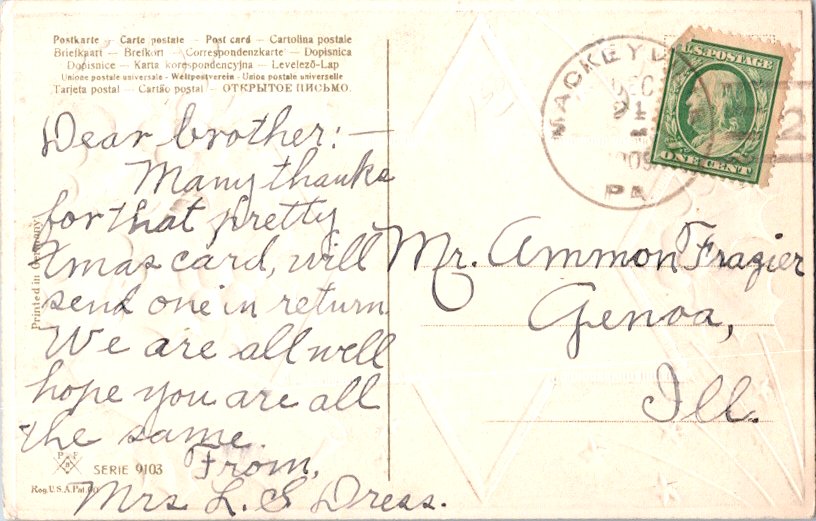 Postkarte — Carte postale — Post card — Cartolina postale
Briefkaart — Brefkort — Correspondenzkarte — Dopisnica
Dopisnice — Karta korespondencyjna — Levelező-Lap
Unione postale universale - Weltpostverein - Union postale universelle
Tarjeta postal — Cartão postal — ОТКРЫТОЕ ПИСЬМО.
Dear brother:—
Many thanks
for that pretty
Xmas card, will
send one in return.
We are all well
hope you are all
the same.
From,
Mrs L. S Dress.
Printed in Germany
PFB
SERIE 9103
Reg. U.S.A. Pat.
MACKEYVILLE
DEC
21
1909
PA
U.S. POSTAGE
ONE CENT
2
Mr. Ammon Frazier
Genoa,
Ill.